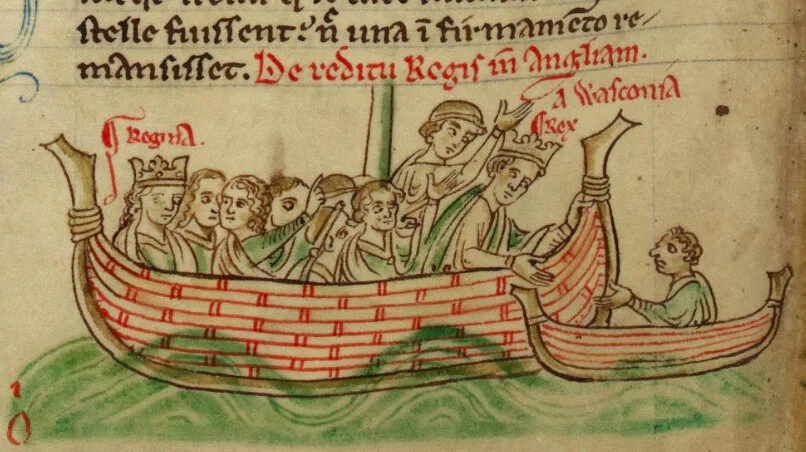 stelle fuissent: nͬ una ī firmamēto re-
mansisset. De reditu Regis in̄ Angliam.
a Wasconia
¶ Regina.
¶ Rex